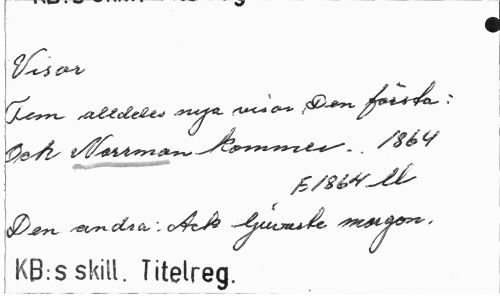 KB:s skill. Titelreg
Visor
Fem alldeles nya visor. Den första:
Och Norrman kommer.. 1864
F.1864 ll
Den andra: Ack ljuvaste morgon.
KB:s skill. Titelreg.